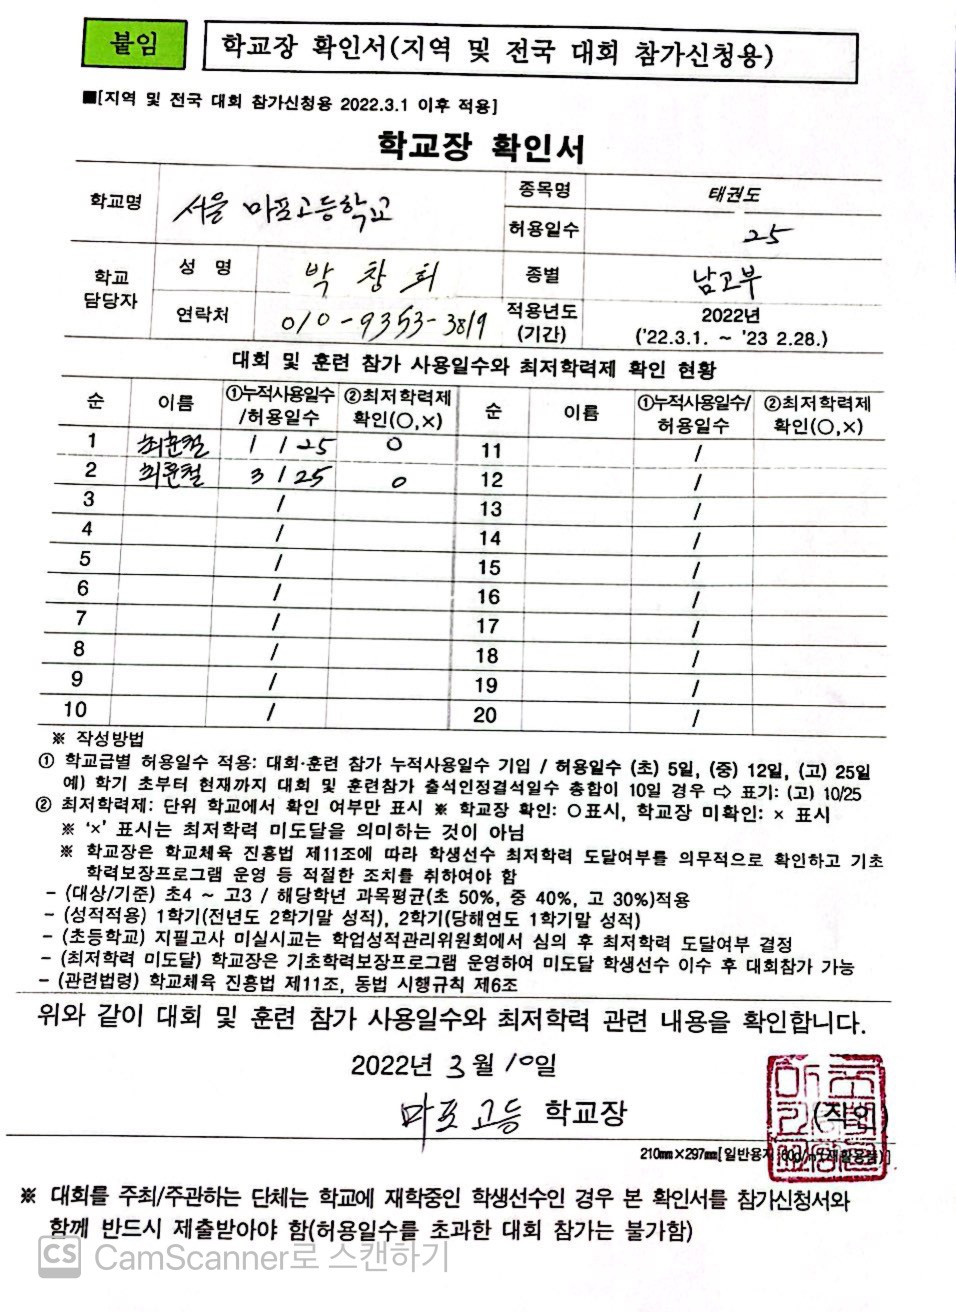 붙임
학교장 확인서(지역 및 전국 대회 참가신청용)
■[지역 및 전국 대회 참가신청용 2022.3.1 이후 적용]
학교장 확인서
학교명 서울 마포고등학교 종목명 태권도
허용일수 25
학교 담당자 성 명 박 창 희 종별 남고부
연락처 010-9353-3819 적용년도 (기간) 2022년 ('22.3.1. ~ '23 2.28.)
대회 및 훈련 참가 사용일수와 최저학력제 확인 현황
순 이름 ①누적사용일수/허용일수 ②최저학력제 확인(○,×) 순 이름 ①누적사용일수/허용일수 ②최저학력제 확인(○,×)
1 최훈철 1 / 25 ○ 11 /
2 최훈철 3 / 25 ○ 12 /
3 / 13 /
4 / 14 /
5 / 15 /
6 / 16 /
7 / 17 /
8 / 18 /
9 / 19 /
10 / 20 /
※ 작성방법
① 학교급별 허용일수 적용: 대회·훈련 참가 누적사용일수 기입 / 허용일수 (초) 5일, (중) 12일, (고) 25일
예) 학기 초부터 현재까지 대회 및 훈련참가 출석인정결석일수 총합이 10일 경우 ⇨ 표기: (고) 10/25
② 최저학력제: 단위 학교에서 확인 여부만 표시 ※ 학교장 확인: ○표시, 학교장 미확인: × 표시
※ '×' 표시는 최저학력 미도달을 의미하는 것이 아님
※ 학교장은 학교체육 진흥법 제11조에 따라 학생선수 최저학력 도달여부를 의무적으로 확인하고 기초
학력보장프로그램 운영 등 적절한 조치를 취하여야 함
- (대상/기준) 초4 ~ 고3 / 해당학년 과목평균(초 50%, 중 40%, 고 30%)적용
- (성적적용) 1학기(전년도 2학기말 성적), 2학기(당해연도 1학기말 성적)
- (초등학교) 지필고사 미실시교는 학업성적관리위원회에서 심의 후 최저학력 도달여부 결정
- (최저학력 미도달) 학교장은 기초학력보장프로그램 운영하여 미도달 학생선수 이수 후 대회참가 가능
- (관련법령) 학교체육 진흥법 제11조, 동법 시행규칙 제6조
위와 같이 대회 및 훈련 참가 사용일수와 최저학력 관련 내용을 확인합니다.
2022년 3월 10일
마포고등 학교장 (직인)
210㎜×297㎜[일반용지 60g/㎡(재활용품)]
※ 대회를 주최/주관하는 단체는 학교에 재학중인 학생선수인 경우 본 확인서를 참가신청서와
함께 반드시 제출받아야 함(허용일수를 초과한 대회 참가는 불가함)
CS CamScanner로 스캔하기